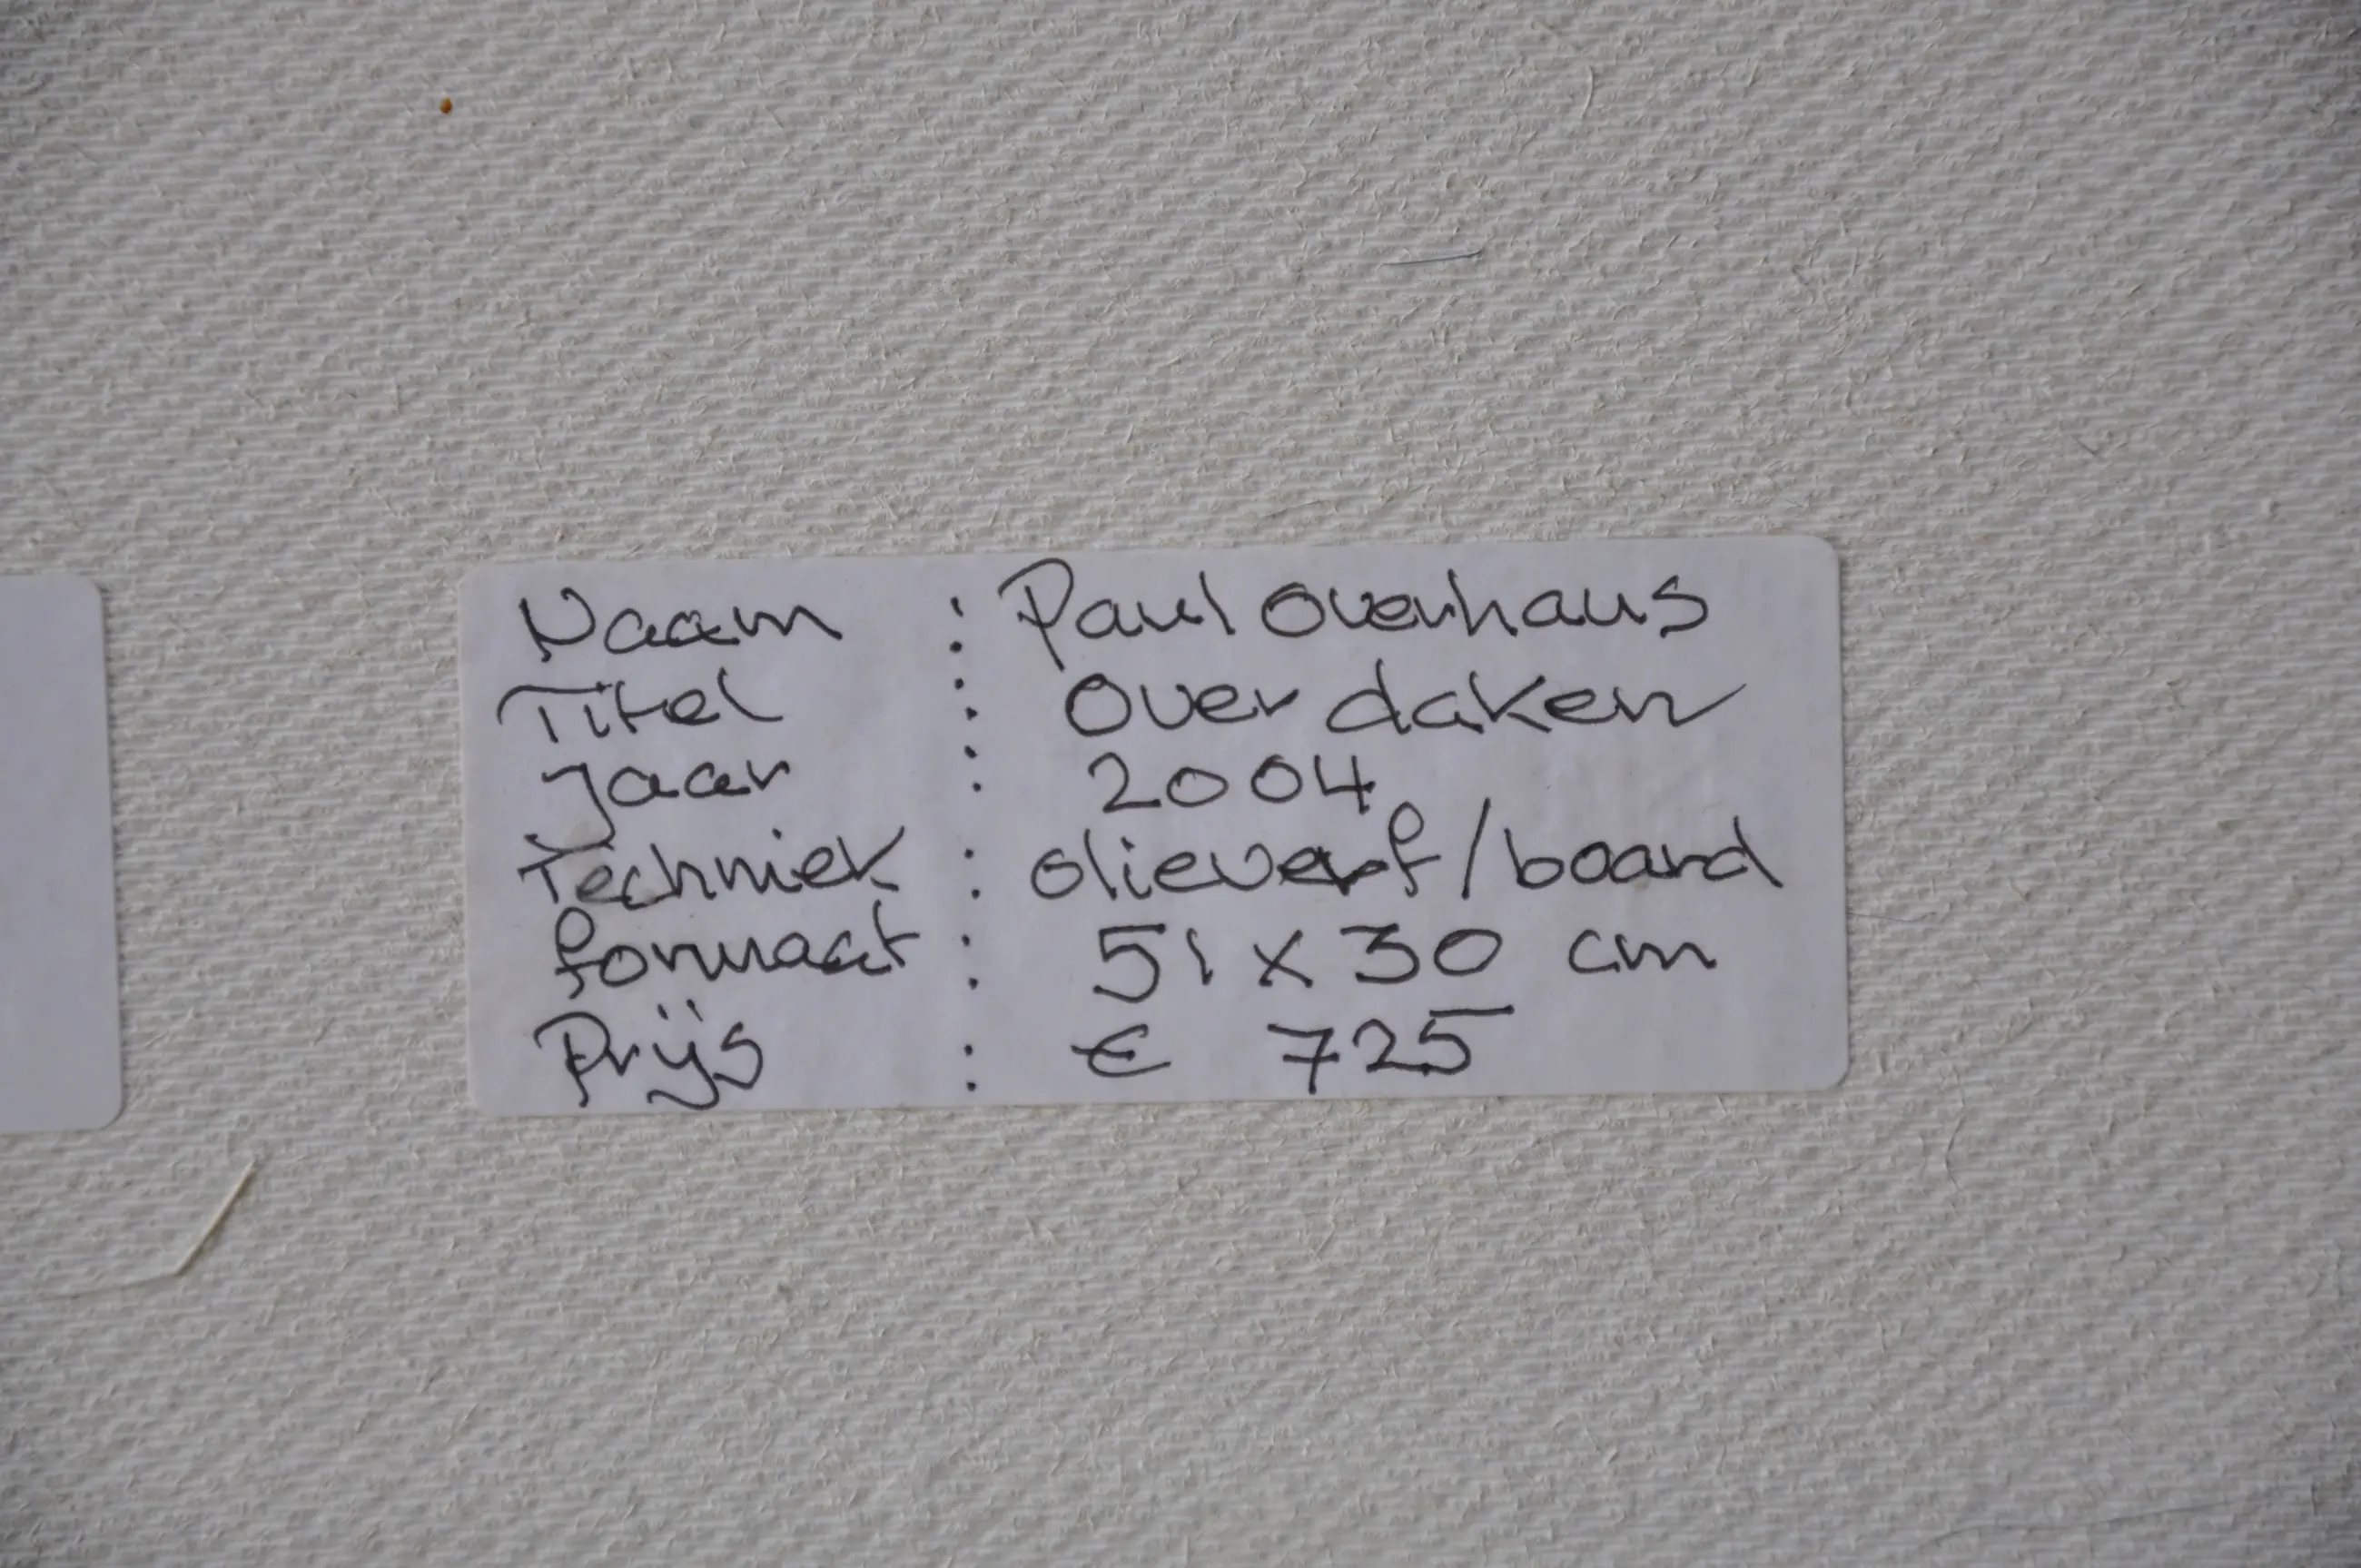 Naam : Paul Overhaus
Titel : Over daken
Jaar : 2004
Techniek : olieverf/board
formaat : 51 x 30 cm
Prijs : € 725